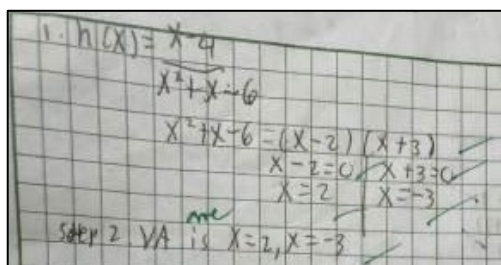 1. h(x) = x-4
x²+x-6
x²+x-6 = (x-2) (x+3)
x-2=0 x+3=0
x=2 x=-3
are
step 2 VA is x=2, x=-3